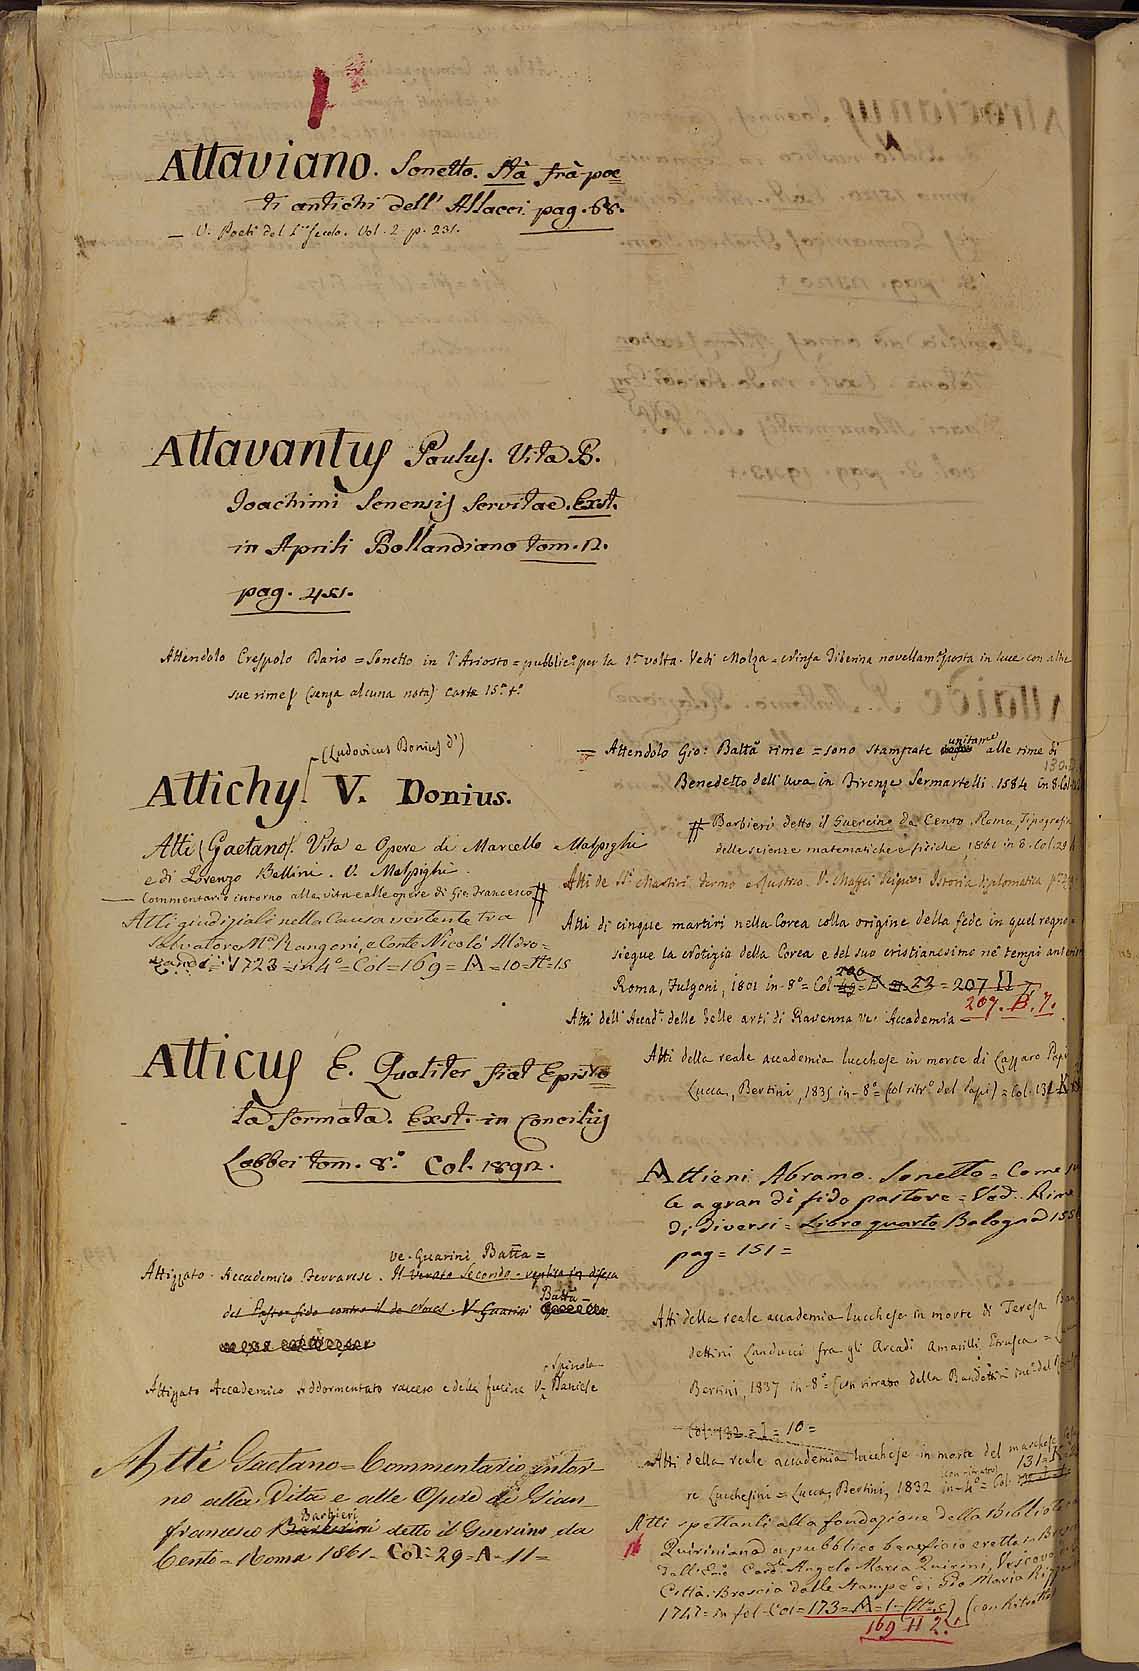 Attaviano. Sonetto. Stà frà poe=
ti antichi dell' Allacci pag. 68.
— V. Poeti del 1.mo secolo. Vol. 2 p. 231.
Attavantus Paulus. Vita B.
Joachimi Senensis Servitae. Exst.
in Aprili Bollandiano tom. 2.
pag. 451.
Attendolo Crespolo Dario = Sonetto in l'Ariosto = pubblic.o per la 1.a volta. Vedi Molza = Ninfa Tiberina novellam.te posta in luce con altre
sue rime (senza alcuna nota) carte 15.o t.o
(Ludovicus Donius d')
Attichy. V. Donius.
Atti (Gaetano). Vita e Opere di Marcello Malpighi
e di Lorenzo Bellini. V. Malpighi.
— Commentario intorno alla vita e alle opere di Gio. Francesco #
Atti giudiziali nella Causa vertente tra
Salvatore M.a Rangoni, e Conte Nicolò Aldro=
vandi = 1723 = in 4.o = Col = 169 = A = 10 = N.o = 15
Atticus E. Qualiter fiat Episto=
la formata. Exst. in Conciliis
Labbei tom. 8.o Col. 1892.
ve. Guarini Batta =
Attizzato. Accademico Ferrarese. Il Verato Secondo = replica in difesa
del Pastor fido contro il de Nores. V. Guarini Batta
Spinola
Attizzato Accademico Addormentato racceso e della fucina V. Daniele
Atti Gaetano = Commentario intor=
no alla Vita e alle Opere di Gian
Barbieri
francesco detto il Guercino da
Cento = Roma 1861 = Col = 29 = A = 11 =
= Attendolo Gio: Batta rime = sono stampate unitame alle rime di
Benedetto dell'Uva in Firenze Sermartelli. 1584 in 8. Col.
# Barbieri detto il Guercino da Cento. Roma, Tipografia
delle scienze matematiche e fisiche, 1861 in 8. Col. 29
Atti de SS. Martiri Fermo e Rustico. V. Maffei Scip.e Istoria diplomatica
Atti di cinque martiri nella Corea colla origine della fede in quel regno =
siegue la notizia della Corea e del suo cristianesimo ne' tempi
Roma, Fulgoni, 1801 in-8.o = Col = 207 II
207. B. 7.
Atti dell'Accad.a delle belle arti di Ravenna ve. Accademia —
Atti della reale accademia lucchese in morte di Lazzaro Papi
Lucca, Bertini, 1835 in-8.o (col ritr.o del Papi) = Col. 132 K
Attieni Abramo. Sonetto = Come
le a gran dì fido pastore = Ved. Rime
di diversi = Libro quarto Bologna
pag = 151 =
Atti della reale accademia lucchese in morte di Teresa
dettini Landucci fra gli Arcadi Amarilli Etrusca =
Bertini, 1837 in-8.o = (con ritratto della Bandettini
Col. 132 = I = 10 =
Atti della reale accademia lucchese in morte del marchese
131 =
re Lucchesini = Lucca, Bertini, 1832 (con ritratto) in-4.o = Col.
Atti spettanti alla fondazione della Biblioteca
Quiriniana a pubblico beneficio eretta in
dall'Emo Card.e Angelo Maria Quirini, Vescovo
Città. Brescia dalle Stampe di Gio Maria
1747 = in fol = Col = 173 = A = 1 = (con Ritratto
169 H 2.